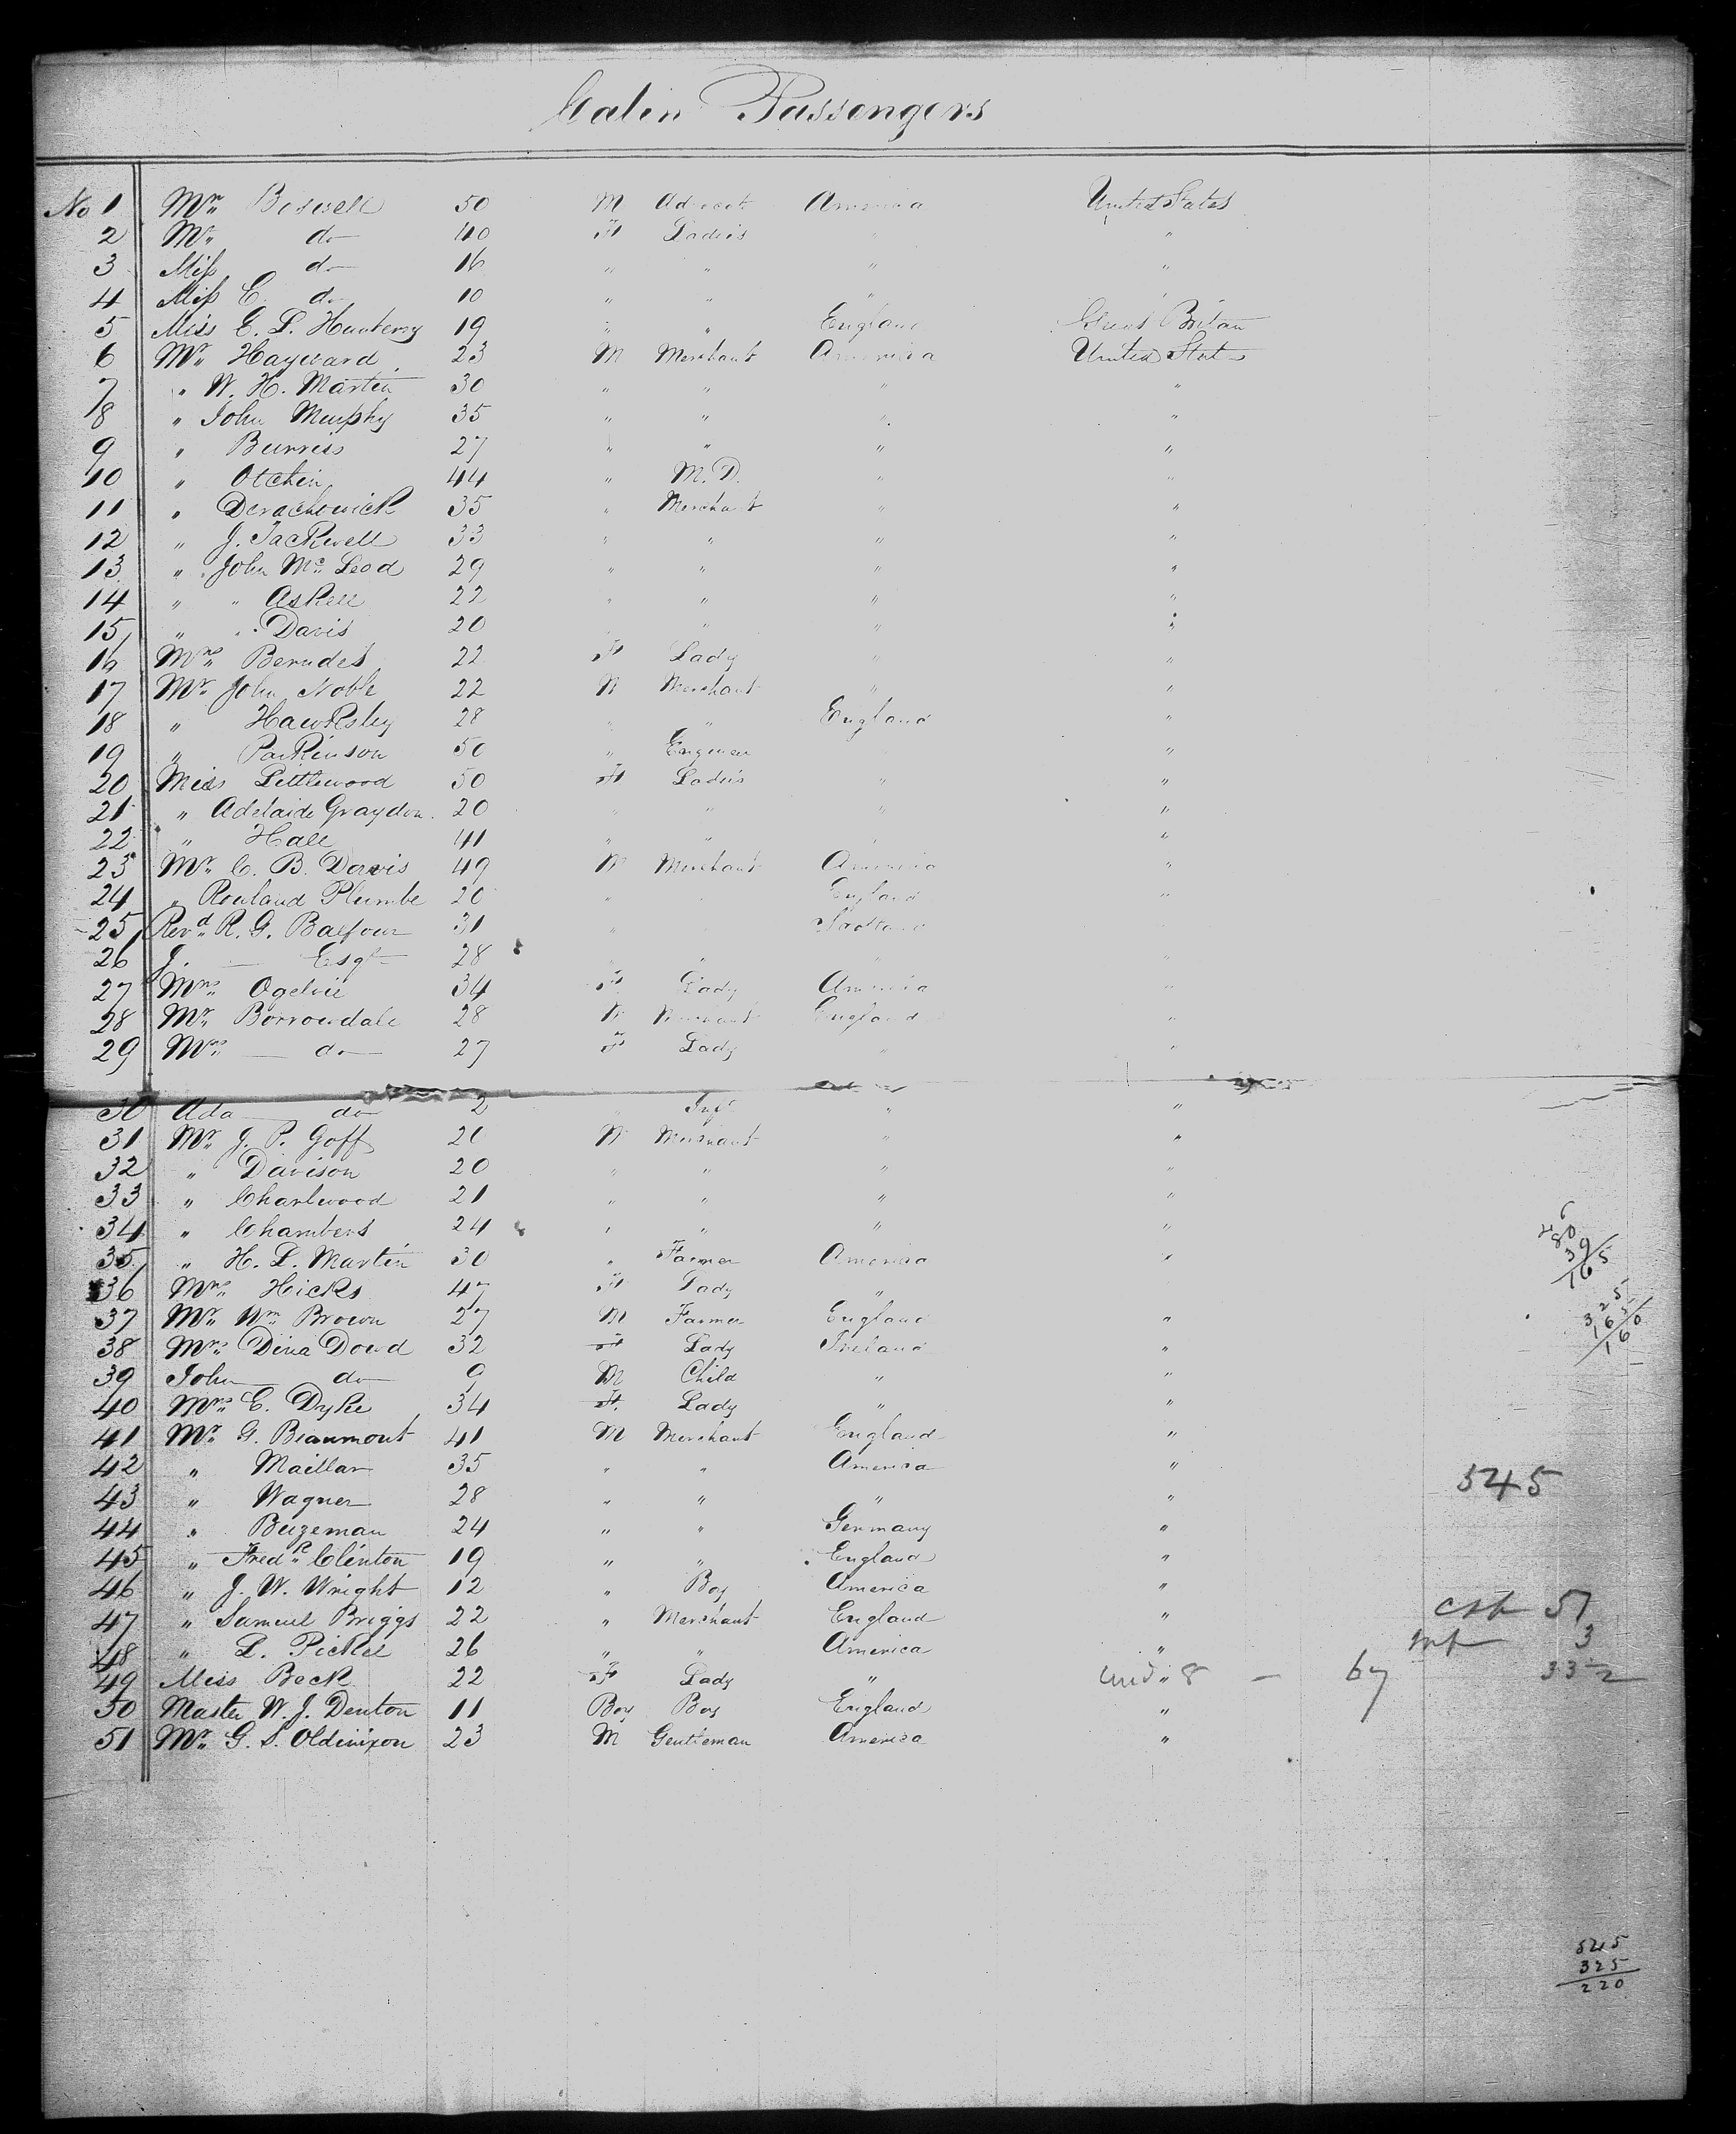 Cabin Passengers
No 1 Mr. Boswell 50 M Advocate America United States
2 Mrs. do 40 F Ladies " "
3 Miss do 16 " " " "
4 Miss C. do 10 " " " "
5 Miss C. L. 19 " " England Great Britain
6 Mr. Hayward 23 M Merchant America United States
7 " W. H. Martin 30 " " " "
8 " John Murphy 35 " " " "
9 " Burriss 27 " " " "
10 " Otchin 44 " M.D. " "
11 " 35 " Merchant " "
12 " J. Jackwell 33 " " " "
13 " John Mc. Leod 29 " " " "
14 " " Askell 22 " " " "
15 " " Davis 20 " " " "
16 Mrs. Berndes 22 F Lady " "
17 Mr. John Noble 22 M Merchant " "
18 " Hawksley 28 " " England "
19 " Parkinson 50 " Engineer "
20 Miss Littlewood 50 F Ladies " "
21 " Adelaide Graydon 20 " " " "
22 " Hall 41 " " " "
23 Mr. C. B. Darvis 49 M Merchant America "
24 " Rowland Plumbe 20 " England "
25 Revd. R. G. Balfour 31 " Scotland
26 J. — Esqr 28 " " " "
27 Mrs. Ogelvie 34 F Lady America "
28 Mr. Borrowdale 28 M Merchant England "
29 Mrs. — do — 27 F Lady " "
30 Ada do 2 " Inft " "
31 Mr. J. P. Goff 20 M Merchant " "
32 " Davison 20 " " " "
33 " Charlwood 21 " " " "
34 " Chambers 24 " " " "
35 " H. L. Martin 30 " Farmer America "
36 Mrs. Hicks 47 F Lady " "
37 Mr. Wm Brown 27 M Farmer England "
38 Mrs. Dina Dowd 32 F Lady Ireland "
39 John do 9 M Child " "
40 Mrs. C. Dyke 34 F. Lady " "
41 Mr. G. Beaumont 41 M Merchant England "
42 " Maillar 35 " " America "
43 " Wagner 28 " " " "
44 " Buzeman 24 " " Germany "
45 " Fredk. Clinton 19 " " England "
46 " J. W. Wright 12 " Boy America "
47 " Samuel Briggs 22 " Merchant England "
48 " L. Pickel 26 " " America "
49 Miss Beck 22 F Lady " "
50 Master W. J. Denton 11 Boy Boy England "
51 Mr. G. S. Oldmixon 23 M Gentleman America "
80
39
165
325
165
160
545
51
3
8 — 67 332
545
325
220